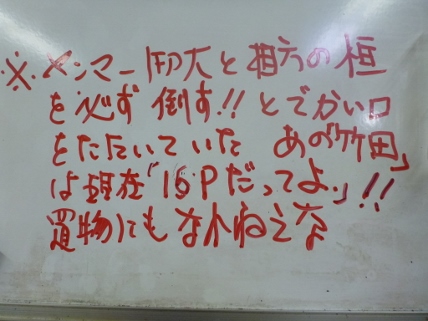 ※メンマー 印大と相方の桓
を必ず倒す!!とでかい口
をたたいていた あの「竹田」
は現在「15Pだってよ.」!!
置物にもなれねえな